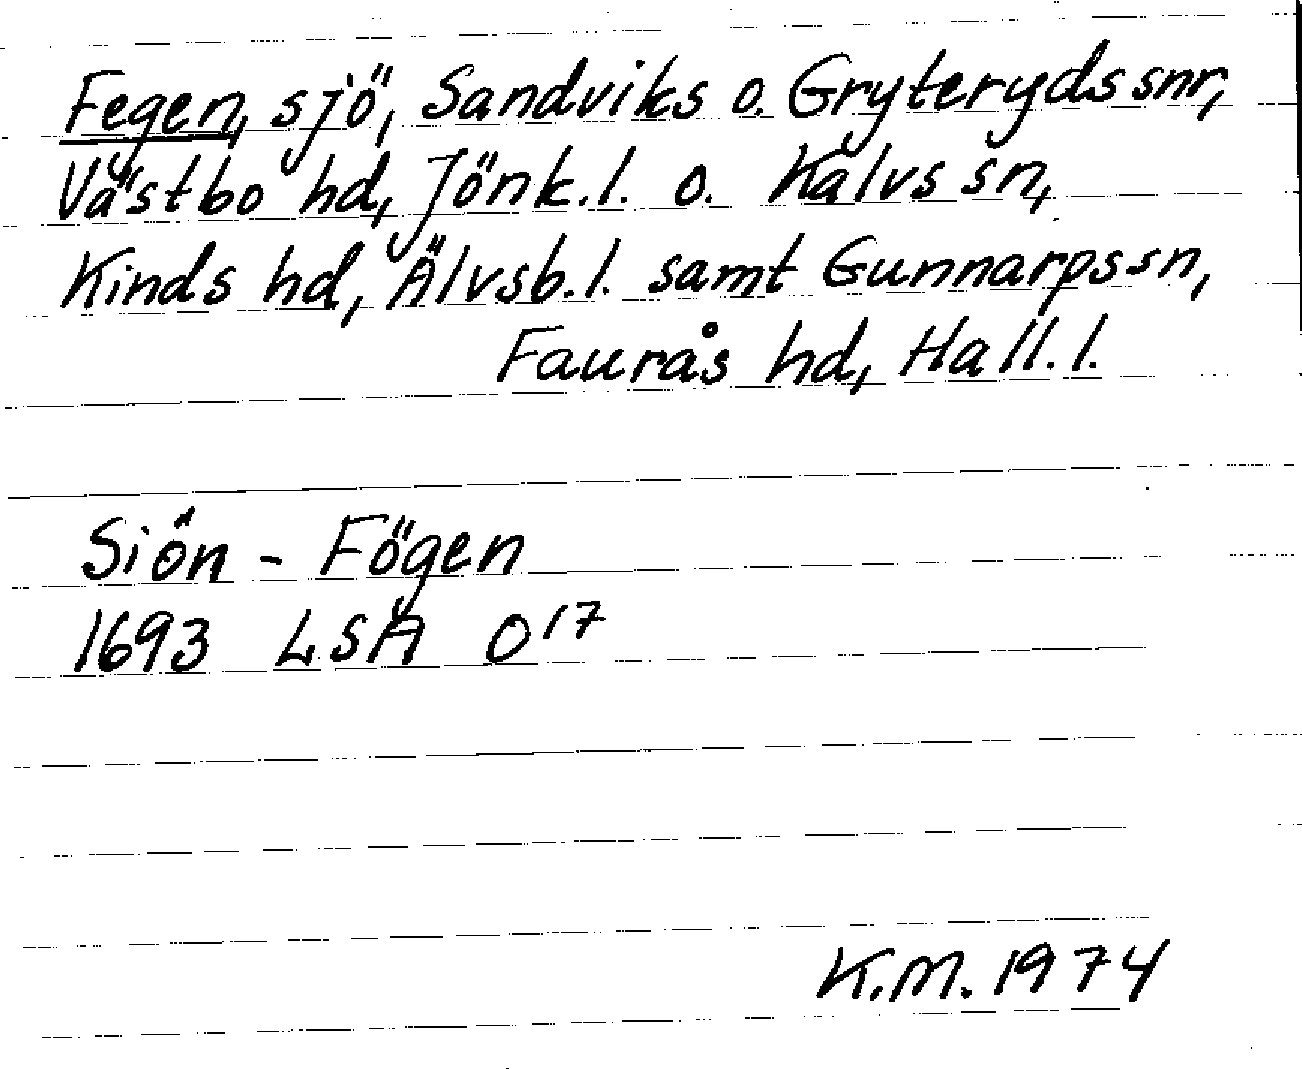 Fegen, sjö, Sandviks o. Gryteryds snr,
Västbo hd, Jönk.l. o. Kalvs sn,
Kinds hd, Älvsb.l. samt Gunnarps sn,
Faurås hd, Hall.l.
Siön - Fögen
1693 LSA O¹⁷
K.M. 1974